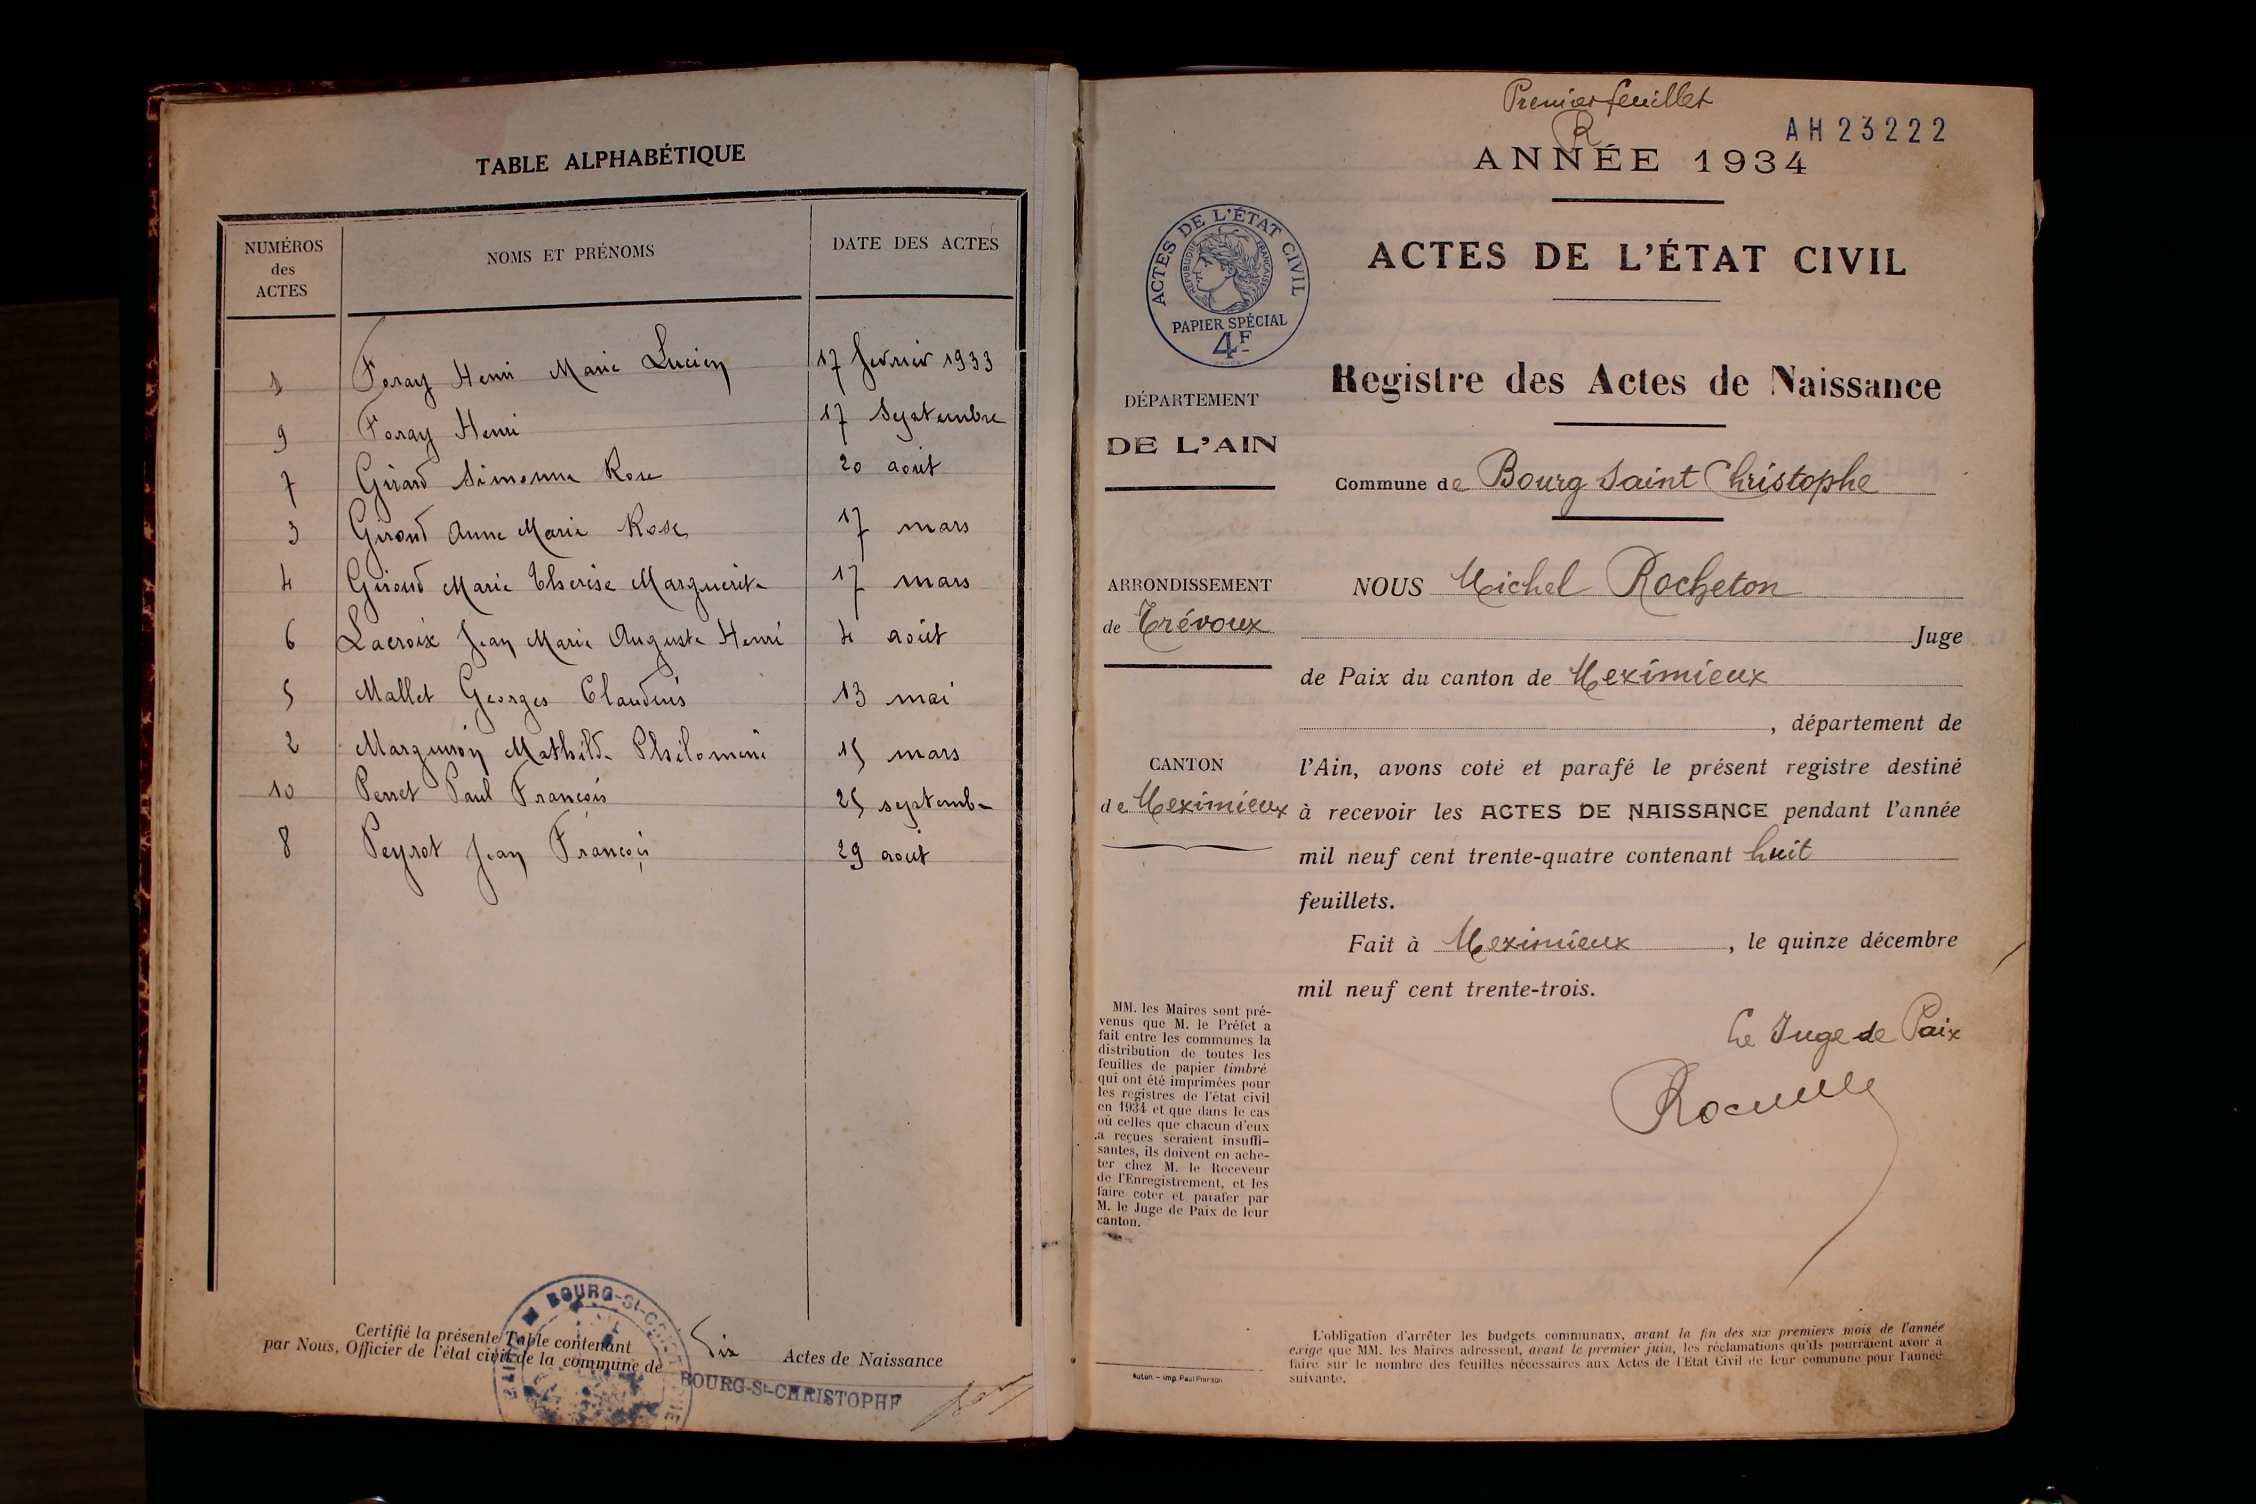 TABLE ALPHABÉTIQUE
NUMÉROS des ACTES
NOMS ET PRÉNOMS
DATE DES ACTES
1 Foray Henri Marie Lucien 17 fevrier 1933
9 Foray Henri 17 Septembre
7 Girard Simonne Rose 20 août
3 Giroud Anne Marie Rose 17 mars
4 Giroud Marie Therese Marguerite 17 mars
6 Lacroix Jean Marie Auguste Henri 4 août
5 Mallet Georges Claudius 13 mai
2 Marguiron Mathilde Philomene 15 mars
10 Perret Paul François 25 septembre
8 Peyrot Jean François 29 août
Certifié la présente Table contenant Dix Actes de Naissance
par Nous, Officier de l'état civil de la commune de BOURG-St-CHRISTOPHE
BOURG-St-CHRISTOPHE
Premier feuillet
R
AH23222
ANNÉE 1934
ACTES DE L'ÉTAT CIVIL
RÉPUBLIQUE FRANÇAISE
PAPIER SPÉCIAL
4F
ACTES DE L'ÉTAT CIVIL
Registre des Actes de Naissance
DÉPARTEMENT
DE L'AIN
Commune de Bourg Saint Christophe
ARRONDISSEMENT
de Trévoux
CANTON
de Meximieux
NOUS Michel Rocheton
Juge
de Paix du canton de Meximieux
, département de
l'Ain, avons coté et parafé le présent registre destiné
à recevoir les ACTES DE NAISSANCE pendant l'année
mil neuf cent trente-quatre contenant huit
feuillets.
Fait à Meximieux, le quinze décembre
mil neuf cent trente-trois.
Le Juge de Paix
MM. les Maires sont pré-
venus que M. le Préfet a
fait entre les communes la
distribution de toutes les
feuilles de papier timbré
qui ont été imprimées pour
les registres de l'état civil
en 1934 et que dans le cas
où celles que chacun d'eux
a reçues seraient insuffi-
santes, ils doivent en ache-
ter chez M. le Receveur
de l'Enregistrement, et les
faire coter et parafer par
M. le Juge de Paix de leur
canton.
L'obligation d'arrêter les budgets communaux, avant la fin des six premiers mois de l'année
exige que MM. les Maires adressent, avant le premier juin, les réclamations qu'ils pourraient avoir à
faire sur le nombre des feuilles nécessaires aux Actes de l'Etat Civil de leur commune pour l'année
suivante.